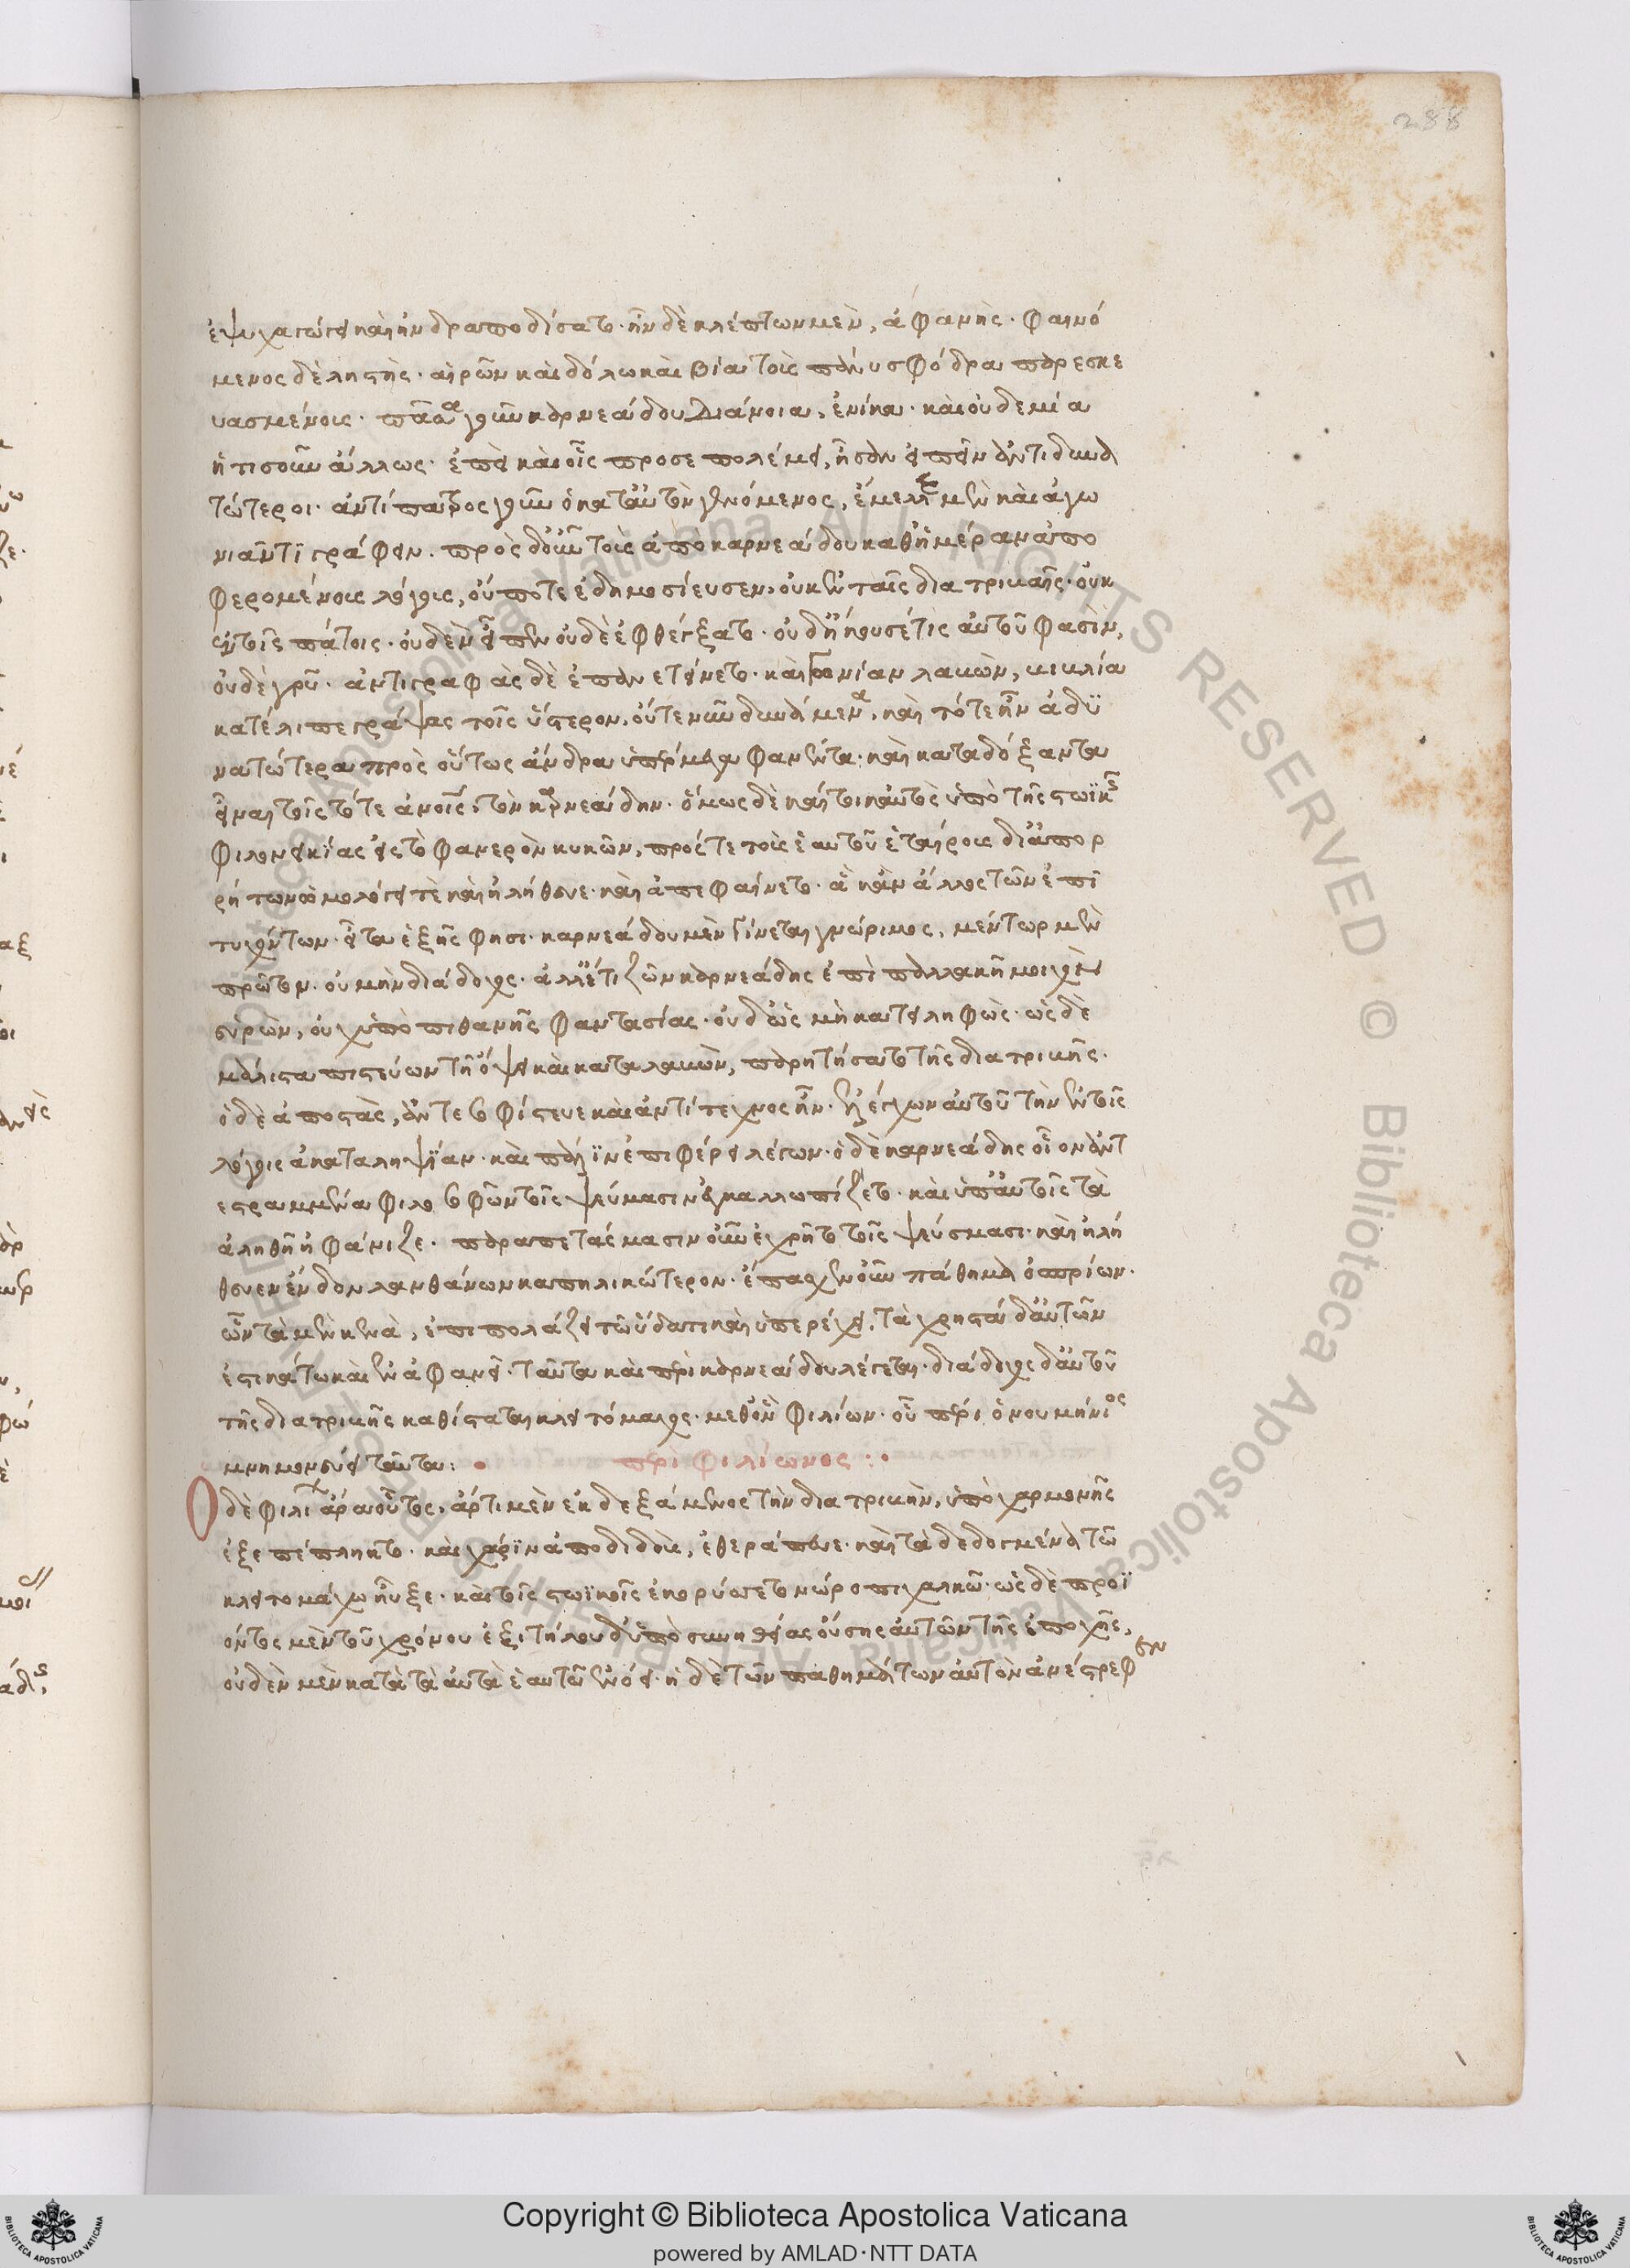 288
ἐψυχαγώγει καὶ ἠνδραποδίσατο· ἦν δὲ κλέπτων μὲν, ἀφανὴς· φαινό
μενος δὲ ληστὴς· αἱρῶν καὶ δόλω καὶ βία τοὺς πάνυ σφόδρα παρεσκε
υασμένους· πᾶσα γοῦν καρνεάδου διάνοια, ἐνίκα· καὶ οὐδεμία
ἡτισοῦν ἄλλως· ἐπεὶ καὶ οἷς προσεπολέμει, ἦσαν εἰπεῖν ἀδυνα
τώτεροι· ἀντίπατρος γοῦν ὁ κατ' αὐτὸν γενόμενος, ἔμελλε μὲν καὶ ἀγω
νιᾶν τι γράφειν· πρὸς δ' οὖν τοὺς ἀπὸ καρνεάδου καθημέραν ἀπο
φερομένους λόγους, οὔποτε ἐδημοσίευσεν· οὐκ ἐν ταῖς διατριβαῖς· οὐκ
ἐν τοῖς πάτοις· οὐδὲν εἶπεν οὐδὲ ἐφθέγξατο· οὐδ' ἤκουσέ τις αὐτοῦ φασὶν,
οὐδὲ γρῦ· ἀντιγραφὰς δὲ ἐπανετείνετο· καὶ γωνίαν λαβὼν, βιβλία
κατέλιπε γράψας τοῖς ὕστερον, οὔτε νῦν δυνάμενα, καὶ τότε ἦν ἀδυ
νατώτερα πρὸς οὕτως ἄνδρα ὑπέρμεγαν φανέντα· καὶ καταδόξαντα
εἶναι τοῖς τότε ἀνοις τὸν καρνεάδην· ὅμως δὲ καίτοι καυτὸς ὑπὸ τῆς στωϊκῆς
φιλονεικίας εἰς τὸ φανερὸν κυκῶν, πρός γε τοὺς ἑαυτοῦ ἑταίρους δι' ἀπορ
ρήτων ὡμολόγει τὲ καὶ ἠλήθευε· καὶ ἀπεφαίνετο· ἃ κἂν ἄλλος τῶν ἐπι
τυχόντων· εἶτα ἑξῆς φησι· καρνεάδου μὲν γίνεται γνώριμος, μέντωρ μὲν
πρῶτον· οὐ μὴν διάδοχος· ἀλλ' ἔτι ζῶν καρνεάδης ἐπὶ παλλακῆ μοιχὸν
εὑρὼν, οὐχ ὑπὸ πιθανῆς φαντασίας· οὐδ' ὡς μὴ κατειληφὼς· ὡς δὲ
μάλιστα πιστεύων τῆ ὄψει καὶ καταλαβὼν, παρητήσατο τῆς διατριβῆς·
ὁ δὲ ἀποστὰς, ἀντεσοφίστευε καὶ ἀντίτεχνος ἦν· ἐλέγχων αὐτοῦ τὴν ἐν τοῖς
λόγοις ἀκαταληψίαν· καὶ πάλιν ἐπιφέρει λέγων· ὁ δὲ καρνεάδης οἷον ἀντ
εστραμμένα φιλοσοφῶν τοῖς ψεύμασιν ἐκαλλωπίζετο· καὶ ὑπ' αὐτοῖς τὰ
ἀληθῆ ἠφάνιζε· παραπετάσμασιν οὖν ἐχρῆτο τοῖς ψεύσμασι· καὶ ἠλή
θευεν ἔνδον λανθάνων καπηλικώτερον· ἔπασχεν οὖν πάθημα ὀσπρίων·
ὧν τὰ μὲν κενὰ, ἐπιπολάζει τῶ ὕδατι καὶ ὑπερέχει, τὰ χρηστὰ δ' αὐτῶν
ἐστι κάτω καὶ ἐν ἀφανεῖ· ταῦτα καὶ περὶ καρνεάδου λέγεται· διάδοχος δ' αὐτοῦ
τῆς διατριβῆς καθίσταται κλειτόμαχος· μεθ' ὃν φιλίων· οὗ πέρι ὁ νουμήνιος
μνημονεύει ταῦτα:
περὶ φιλίωνος :·
Ὁ δὲ φιλίων ἄρα οὗτος, ἄρτι μὲν ἐκδεξάμενος τὴν διατριβὴν, ὑπὸ χαρμονῆς
ἐξεπέπληκτο· καὶ χάριν ἀποδιδοὺς, ἐθεράπευε· καὶ τὰ δεδογμένα τῶ
κλειτομάχω ηὖξε· καὶ τοῖς στωϊκοῖς ἐκορύσσετο νώροπι χαλκῶ· ὡς δὲ προϊ
όντος μὲν τοῦ χρόνου ἐξιτήλου δ' ὑπὸ συνηθείας οὔσης αὐτῶν τῆς ἐποχῆς,
οὐδὲν μὲν κατὰ τὰ αὐτὰ ἑαυτῶ ἐνόει· ἡ δὲ τῶν παθημάτων αὐτὸν ἀνέστρεφεν
Copyright © Biblioteca Apostolica Vaticana
powered by AMLAD·NTT DATA